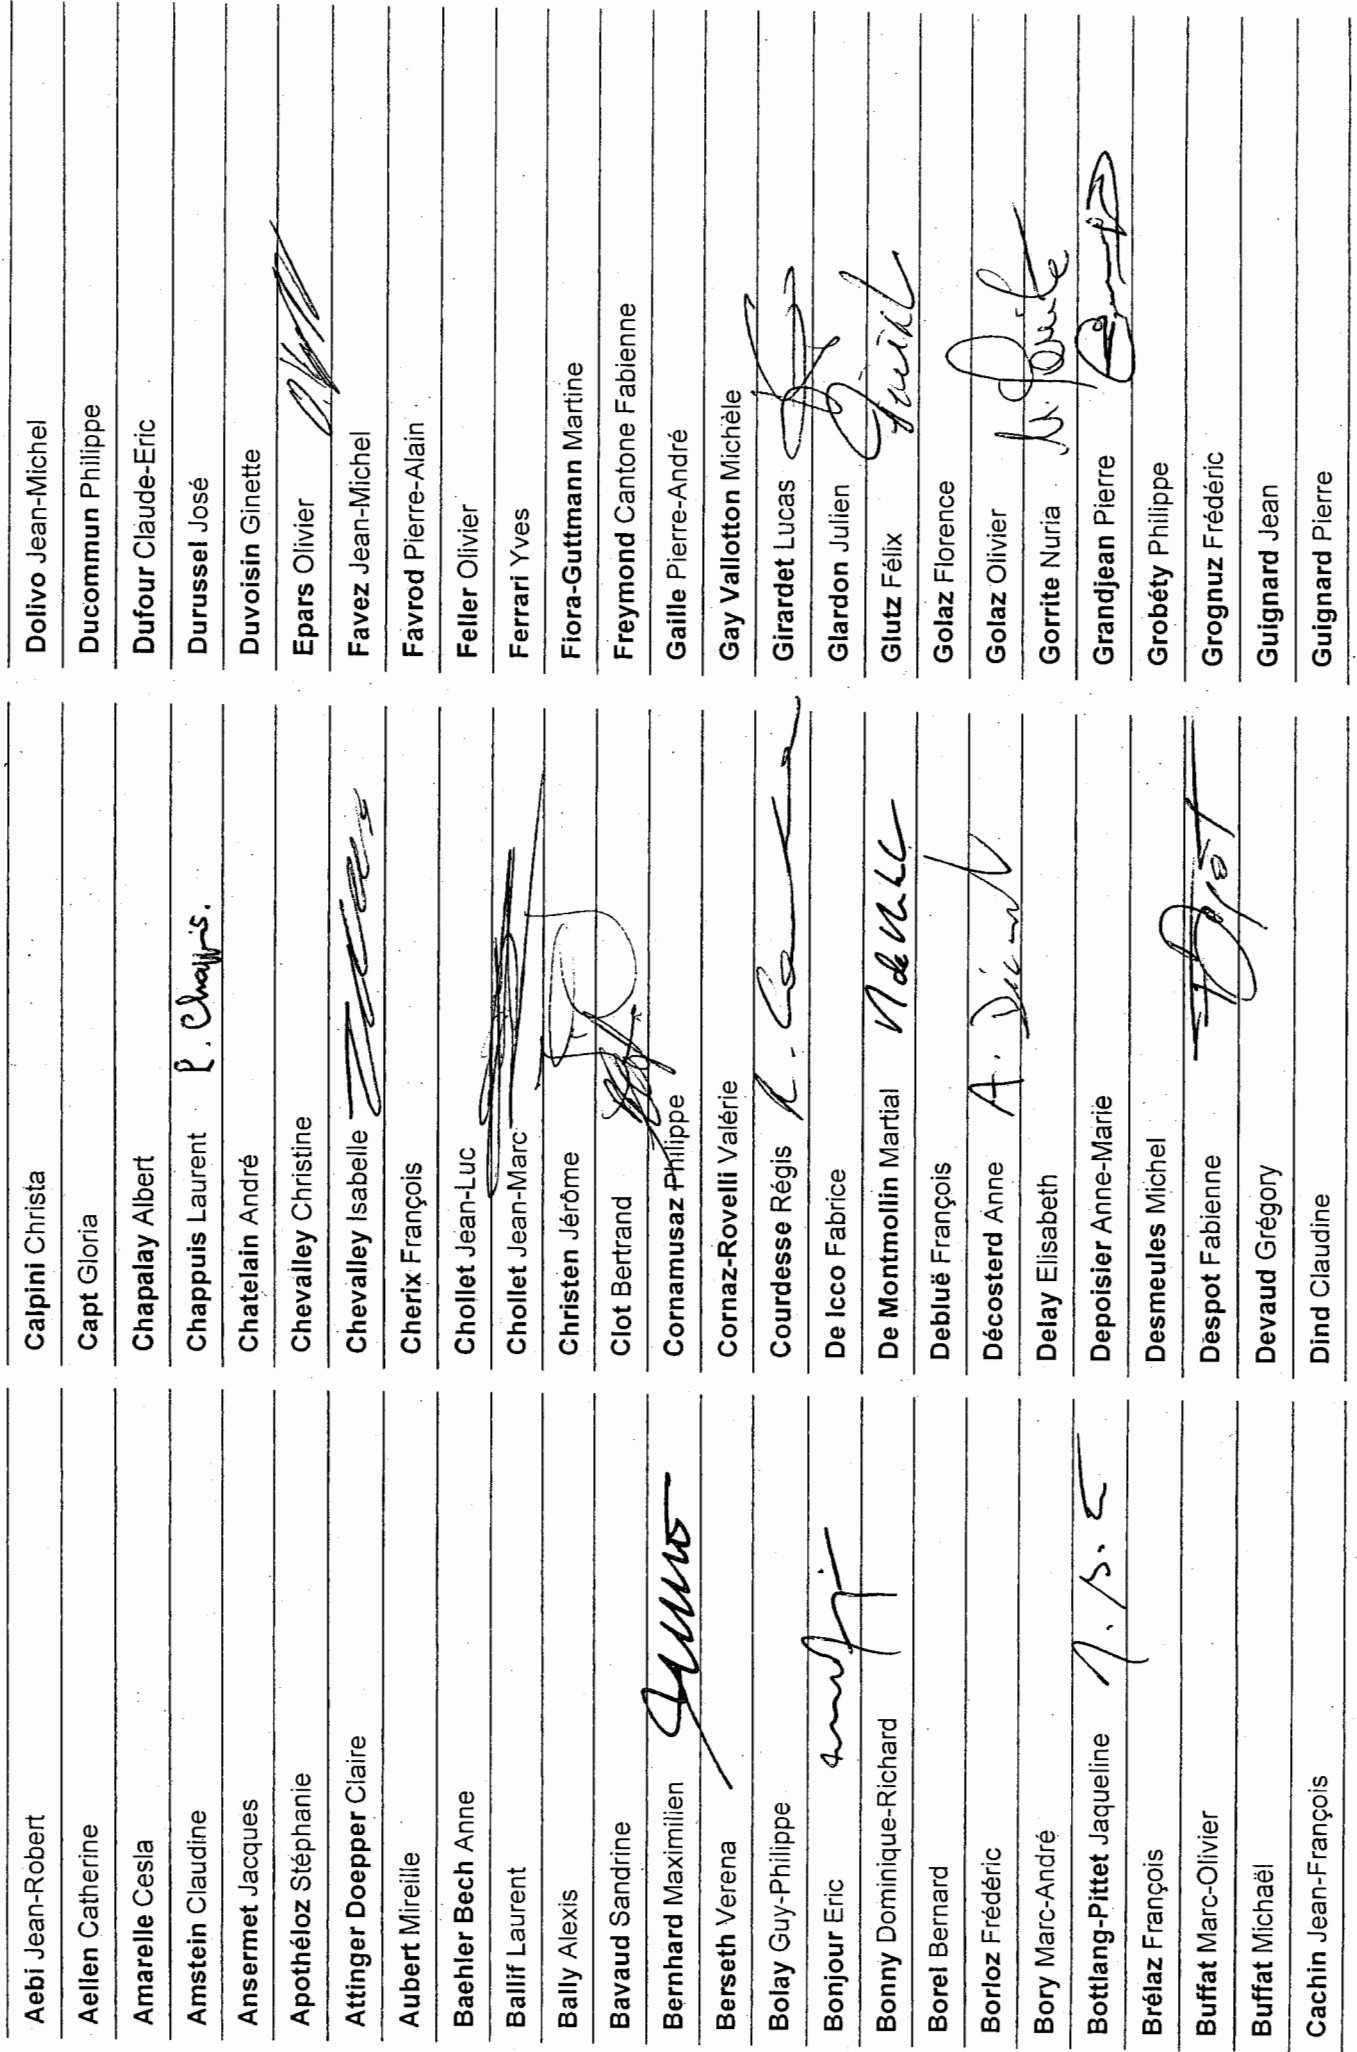 Aebi Jean-Robert
Aellen Catherine
Amarelle Cesla
Amstein Claudine
Ansermet Jacques
Apothéloz Stéphanie
Attinger Doepper Claire
Aubert Mireille
Baehler Bech Anne
Ballif Laurent
Bally Alexis
Bavaud Sandrine
Bernhard Maximilien
Berseth Verena
Bolay Guy-Philippe
Bonjour Eric
Bonny Dominique-Richard
Borel Bernard
Borloz Frédéric
Bory Marc-André
Bottlang-Pittet Jaqueline
Brélaz François
Buffat Marc-Olivier
Buffat Michaël
Cachin Jean-François
Calpini Christa
Capt Gloria
Chapalay Albert
Chappuis Laurent
Chatelain André
Chevalley Christine
Chevalley Isabelle
Cherix François
Chollet Jean-Luc
Chollet Jean-Marc
Christen Jérôme
Clot Bertrand
Cornamusaz Philippe
Cornaz-Rovelli Valérie
Courdesse Régis
De Icco Fabrice
De Montmollin Martial
Debluë François
Décosterd Anne
Delay Elisabeth
Depoisier Anne-Marie
Desmeules Michel
Despot Fabienne
Devaud Grégory
Dind Claudine
Dolivo Jean-Michel
Ducommun Philippe
Dufour Claude-Eric
Durussel José
Duvoisin Ginette
Epars Olivier
Favez Jean-Michel
Favrod Pierre-Alain
Feller Olivier
Ferrari Yves
Fiora-Guttmann Martine
Freymond Cantone Fabienne
Gaille Pierre-André
Gay Vallotton Michèle
Girardet Lucas
Glardon Julien
Glutz Félix
Golaz Florence
Golaz Olivier
Gorrite Nuria
Grandjean Pierre
Grobéty Philippe
Grognuz Frédéric
Guignard Jean
Guignard Pierre